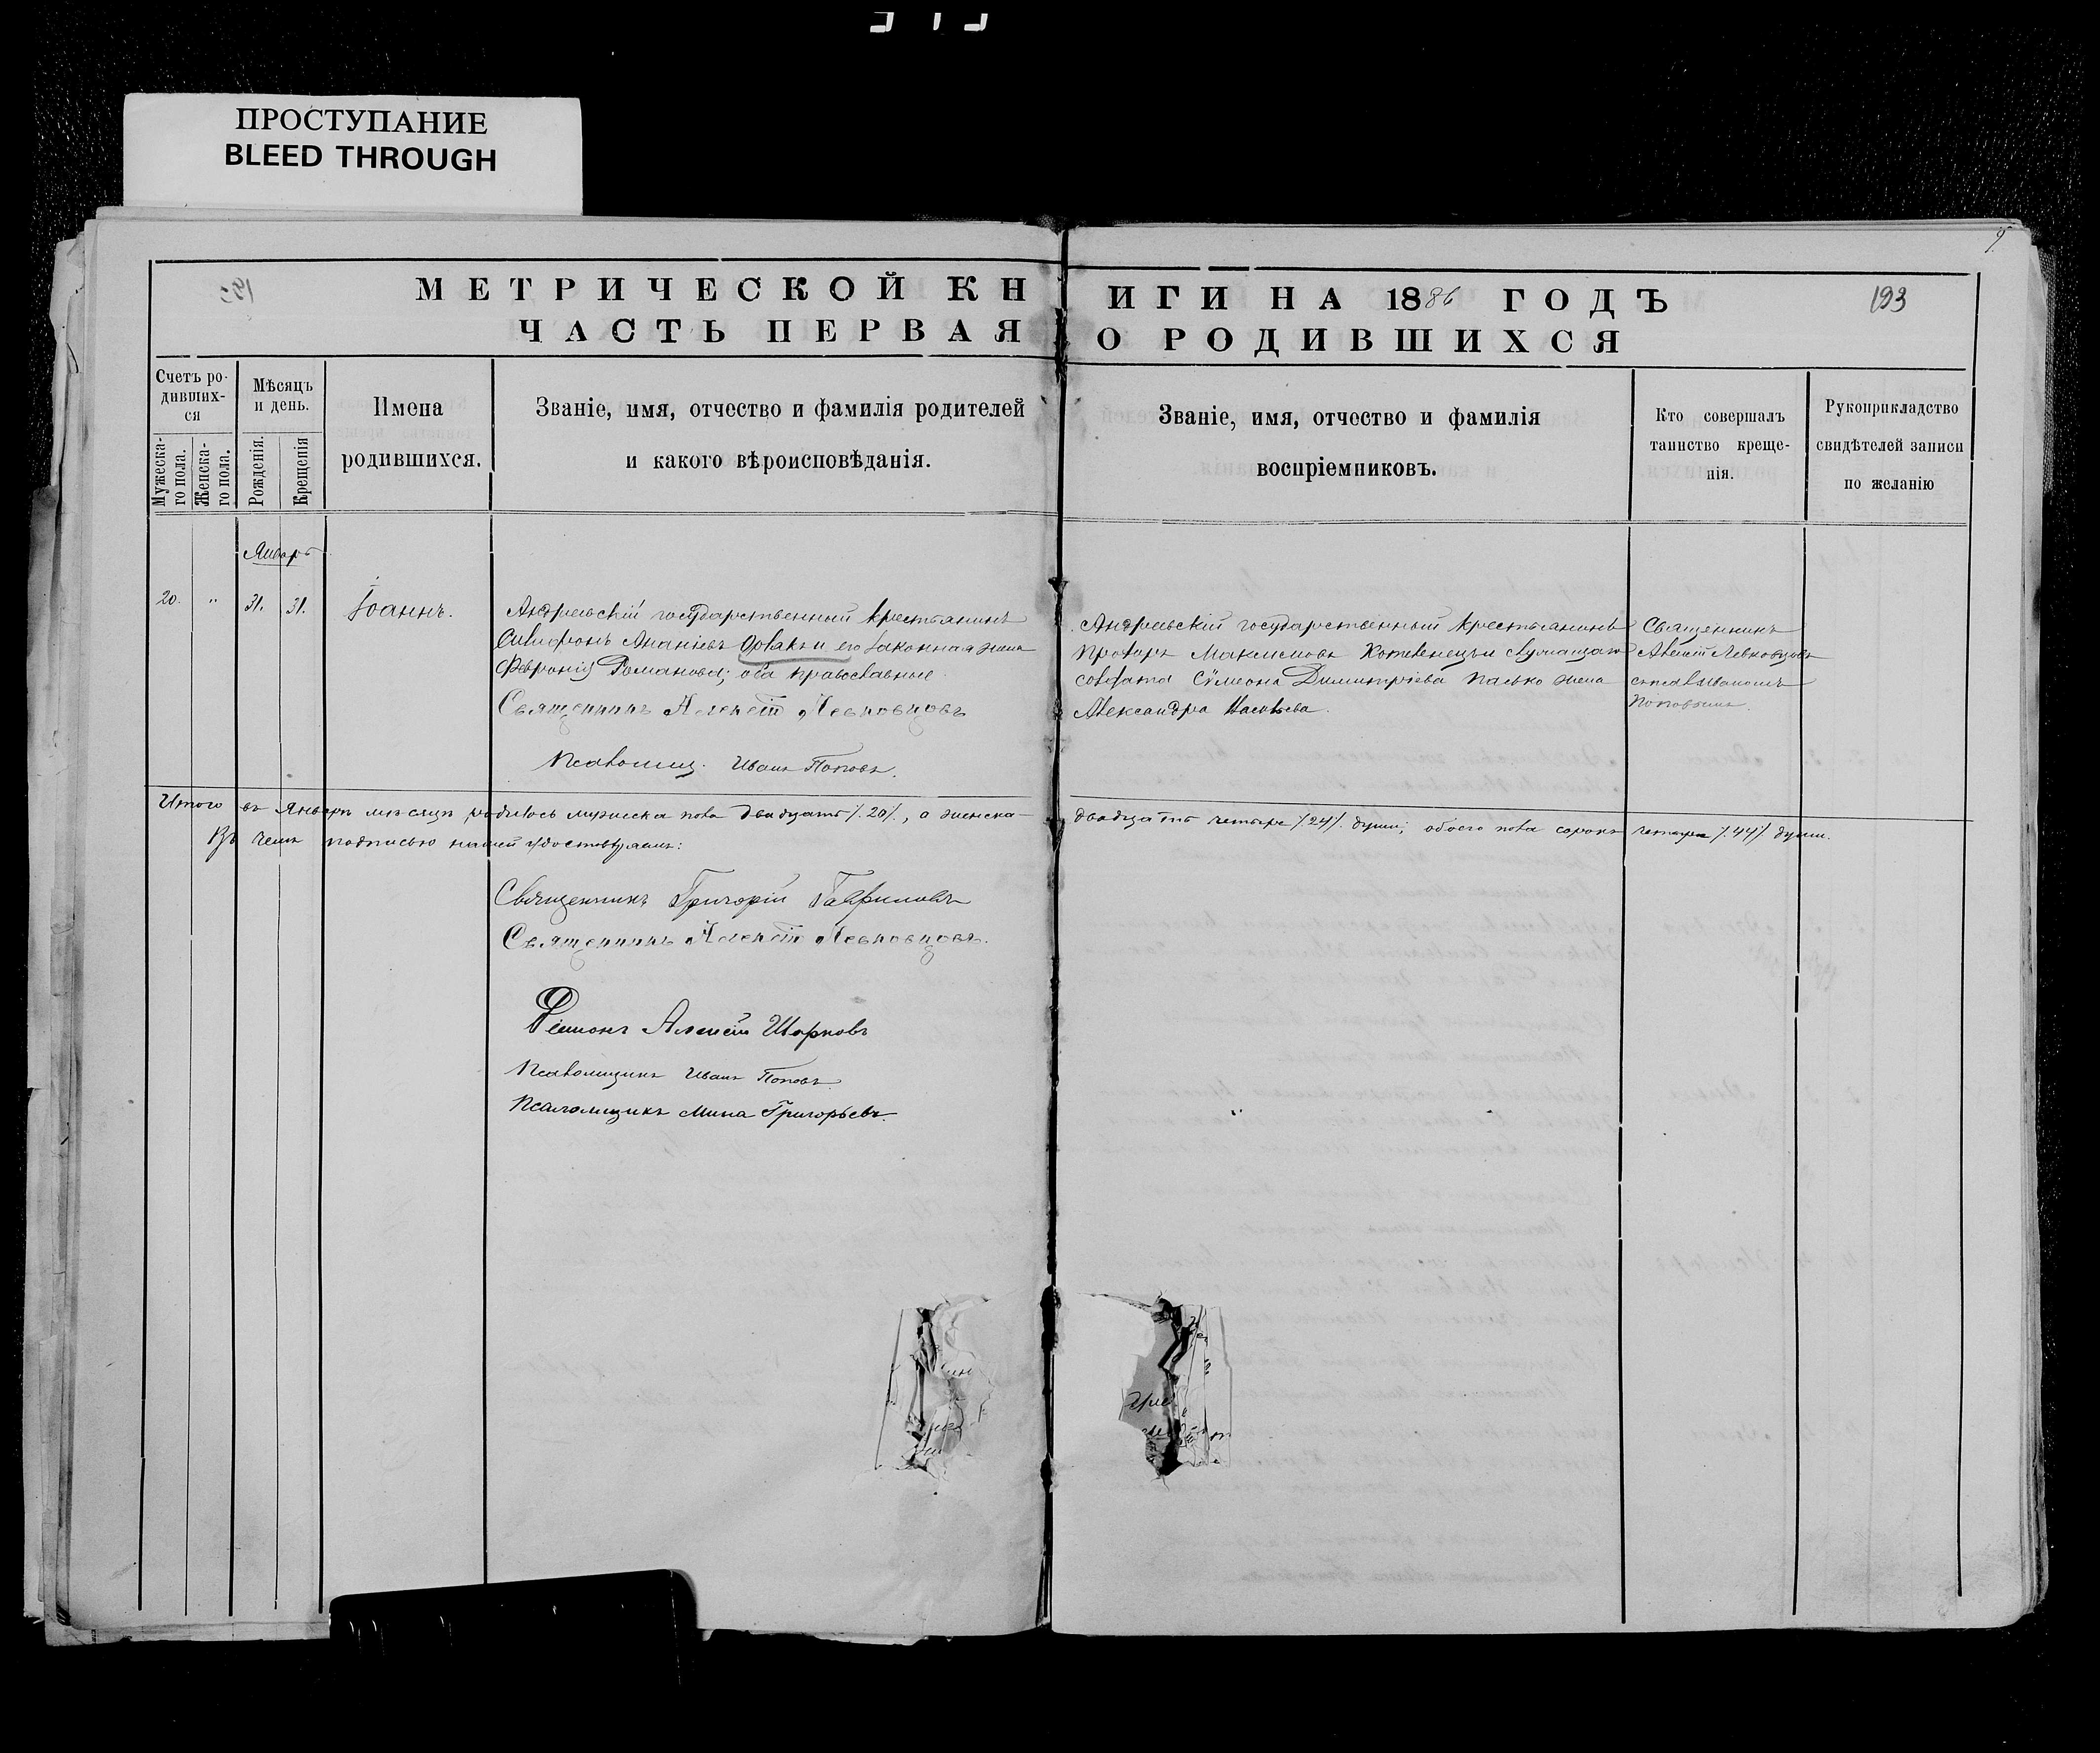 ПРОСТУПАНИЕ
BLEED THROUGH
МЕТРИЧЕСКОЙ КНИГИ НА 1886 ГОДЪ
193
ЧАСТЬ ПЕРВАЯ О РОДИВШИХСЯ
Счетъ ро-
дивших-
ся
Мужеска-
го пола.
Женска-
го пола.
Мѣсяцъ
и день.
Рожденія.
Крещенія
Имена
родившихся.
Званіе, имя, отчество и фамилія родителей
и какого вѣроисповѣданія.
Званіе, имя, отчество и фамилія
воспріемниковъ.
Кто совершалъ
таинство креще-
нія.
Рукоприкладство
свидѣтелей записи
по желанію
Январь
20. " 31. 31. Іоаннъ.
Андреевскій государственный крестьянинъ
Ананіевъ и его законная жена
Февронія Романова; оба православные
Священникъ Алексій Левковцовъ
Псаломщ. Иванъ Поповъ.
Андреевскій государственный крестьянинъ
Прохоръ Максимовъ и
солдата Сѵмеона Димитріева жена
Александра
Священникъ
Алексій Левковцовъ
съ псаломщикомъ
Поповымъ.
Итого въ Январѣ мѣсяцѣ родилось мужеска пола двадцать /. 20 /., а женска – двадцать четыре /. 24 /. души; обоего пола сорокъ четыре /. 44 /. души.
Въ чемъ подписью нашей удостовѣряемъ:
Священникъ Григорій Гавриловъ
Священникъ Алексій Левковцовъ.
Діаконъ Алексій
Псаломщикъ Иванъ Поповъ
Псаломщикъ Мина Григорьевъ.